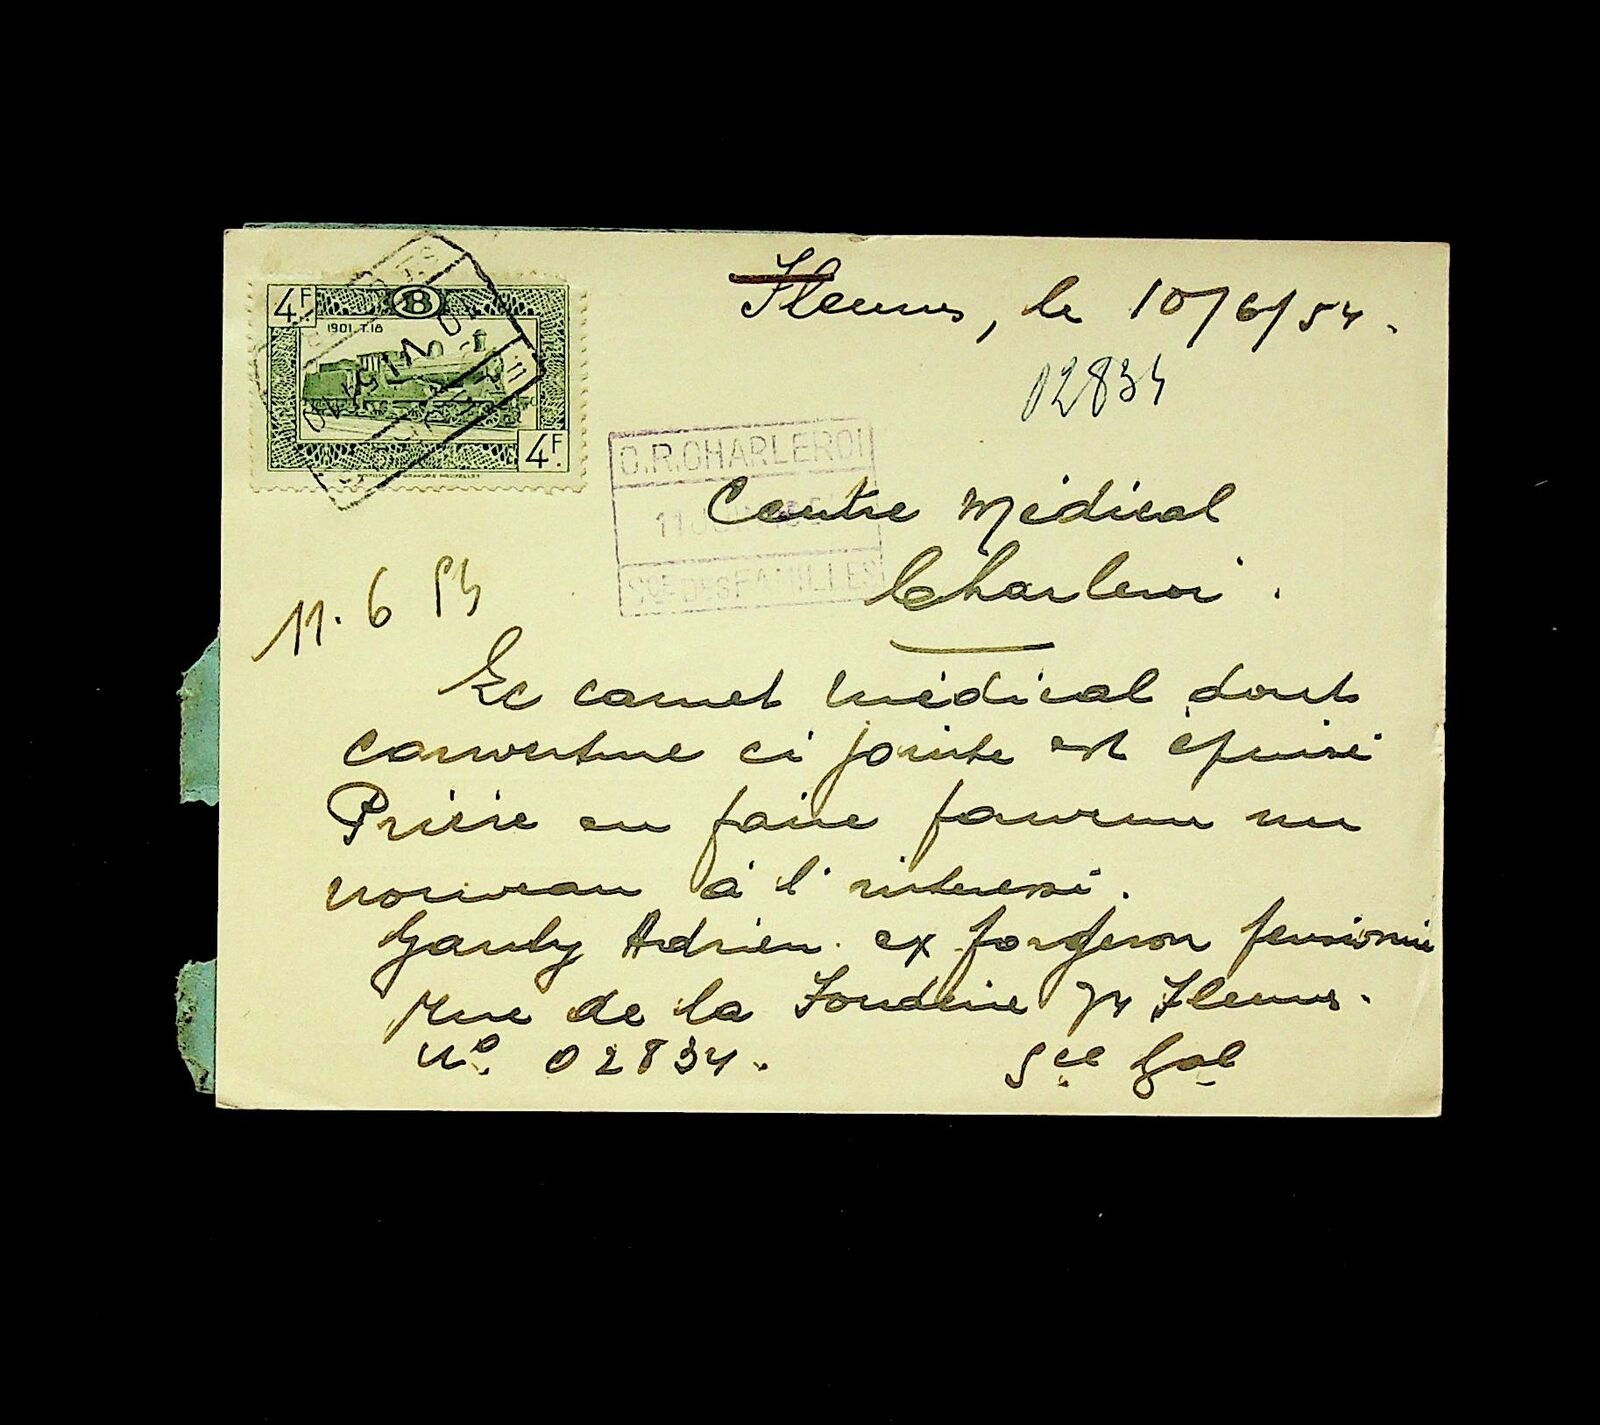 4F B
1901.T.18
4F.
Fleurus, le 10/6/54.
02834
C.R.CHARLEROI
Centre Médical
Sce DES FAMILLES
Charleroi.
11.6 54
Le carnet médical dont
couverture ci jointe est épuisé
Prière en faire fournir un
nouveau à l'intéressé.
Adrien. ex forgeron pensionné
Rue de la Fonderie 74 Fleurus.
No. 02834. Sce Gal